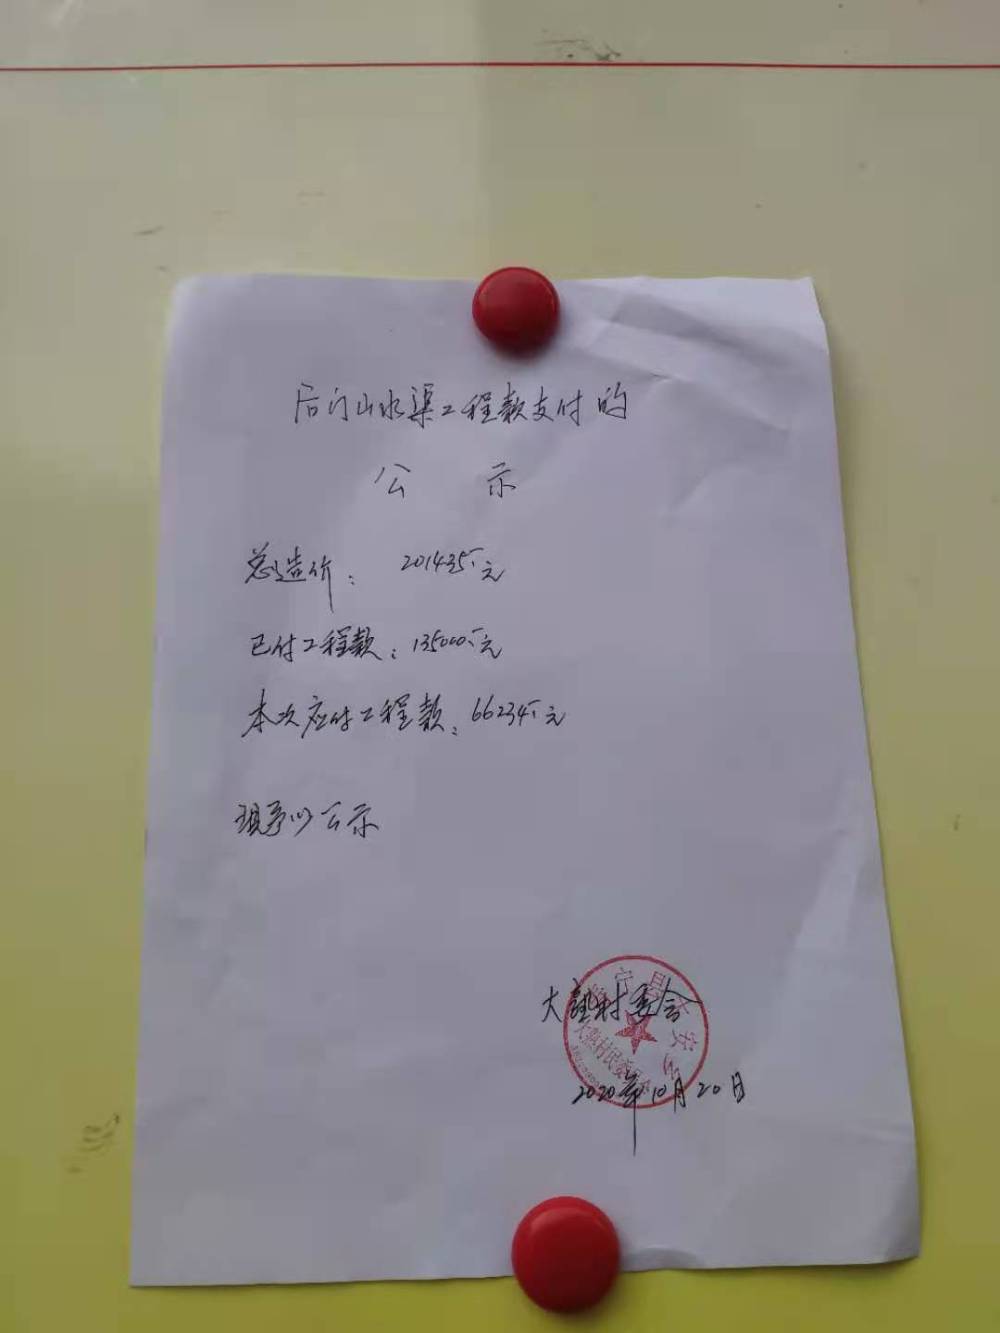 后门山水渠工程款支付的
公 示
总造价： 201435元
已付工程款：135000元
本次应付工程款：66234元
现予以公示
大塾村委会
大塾村民委员会
2020年10月20日